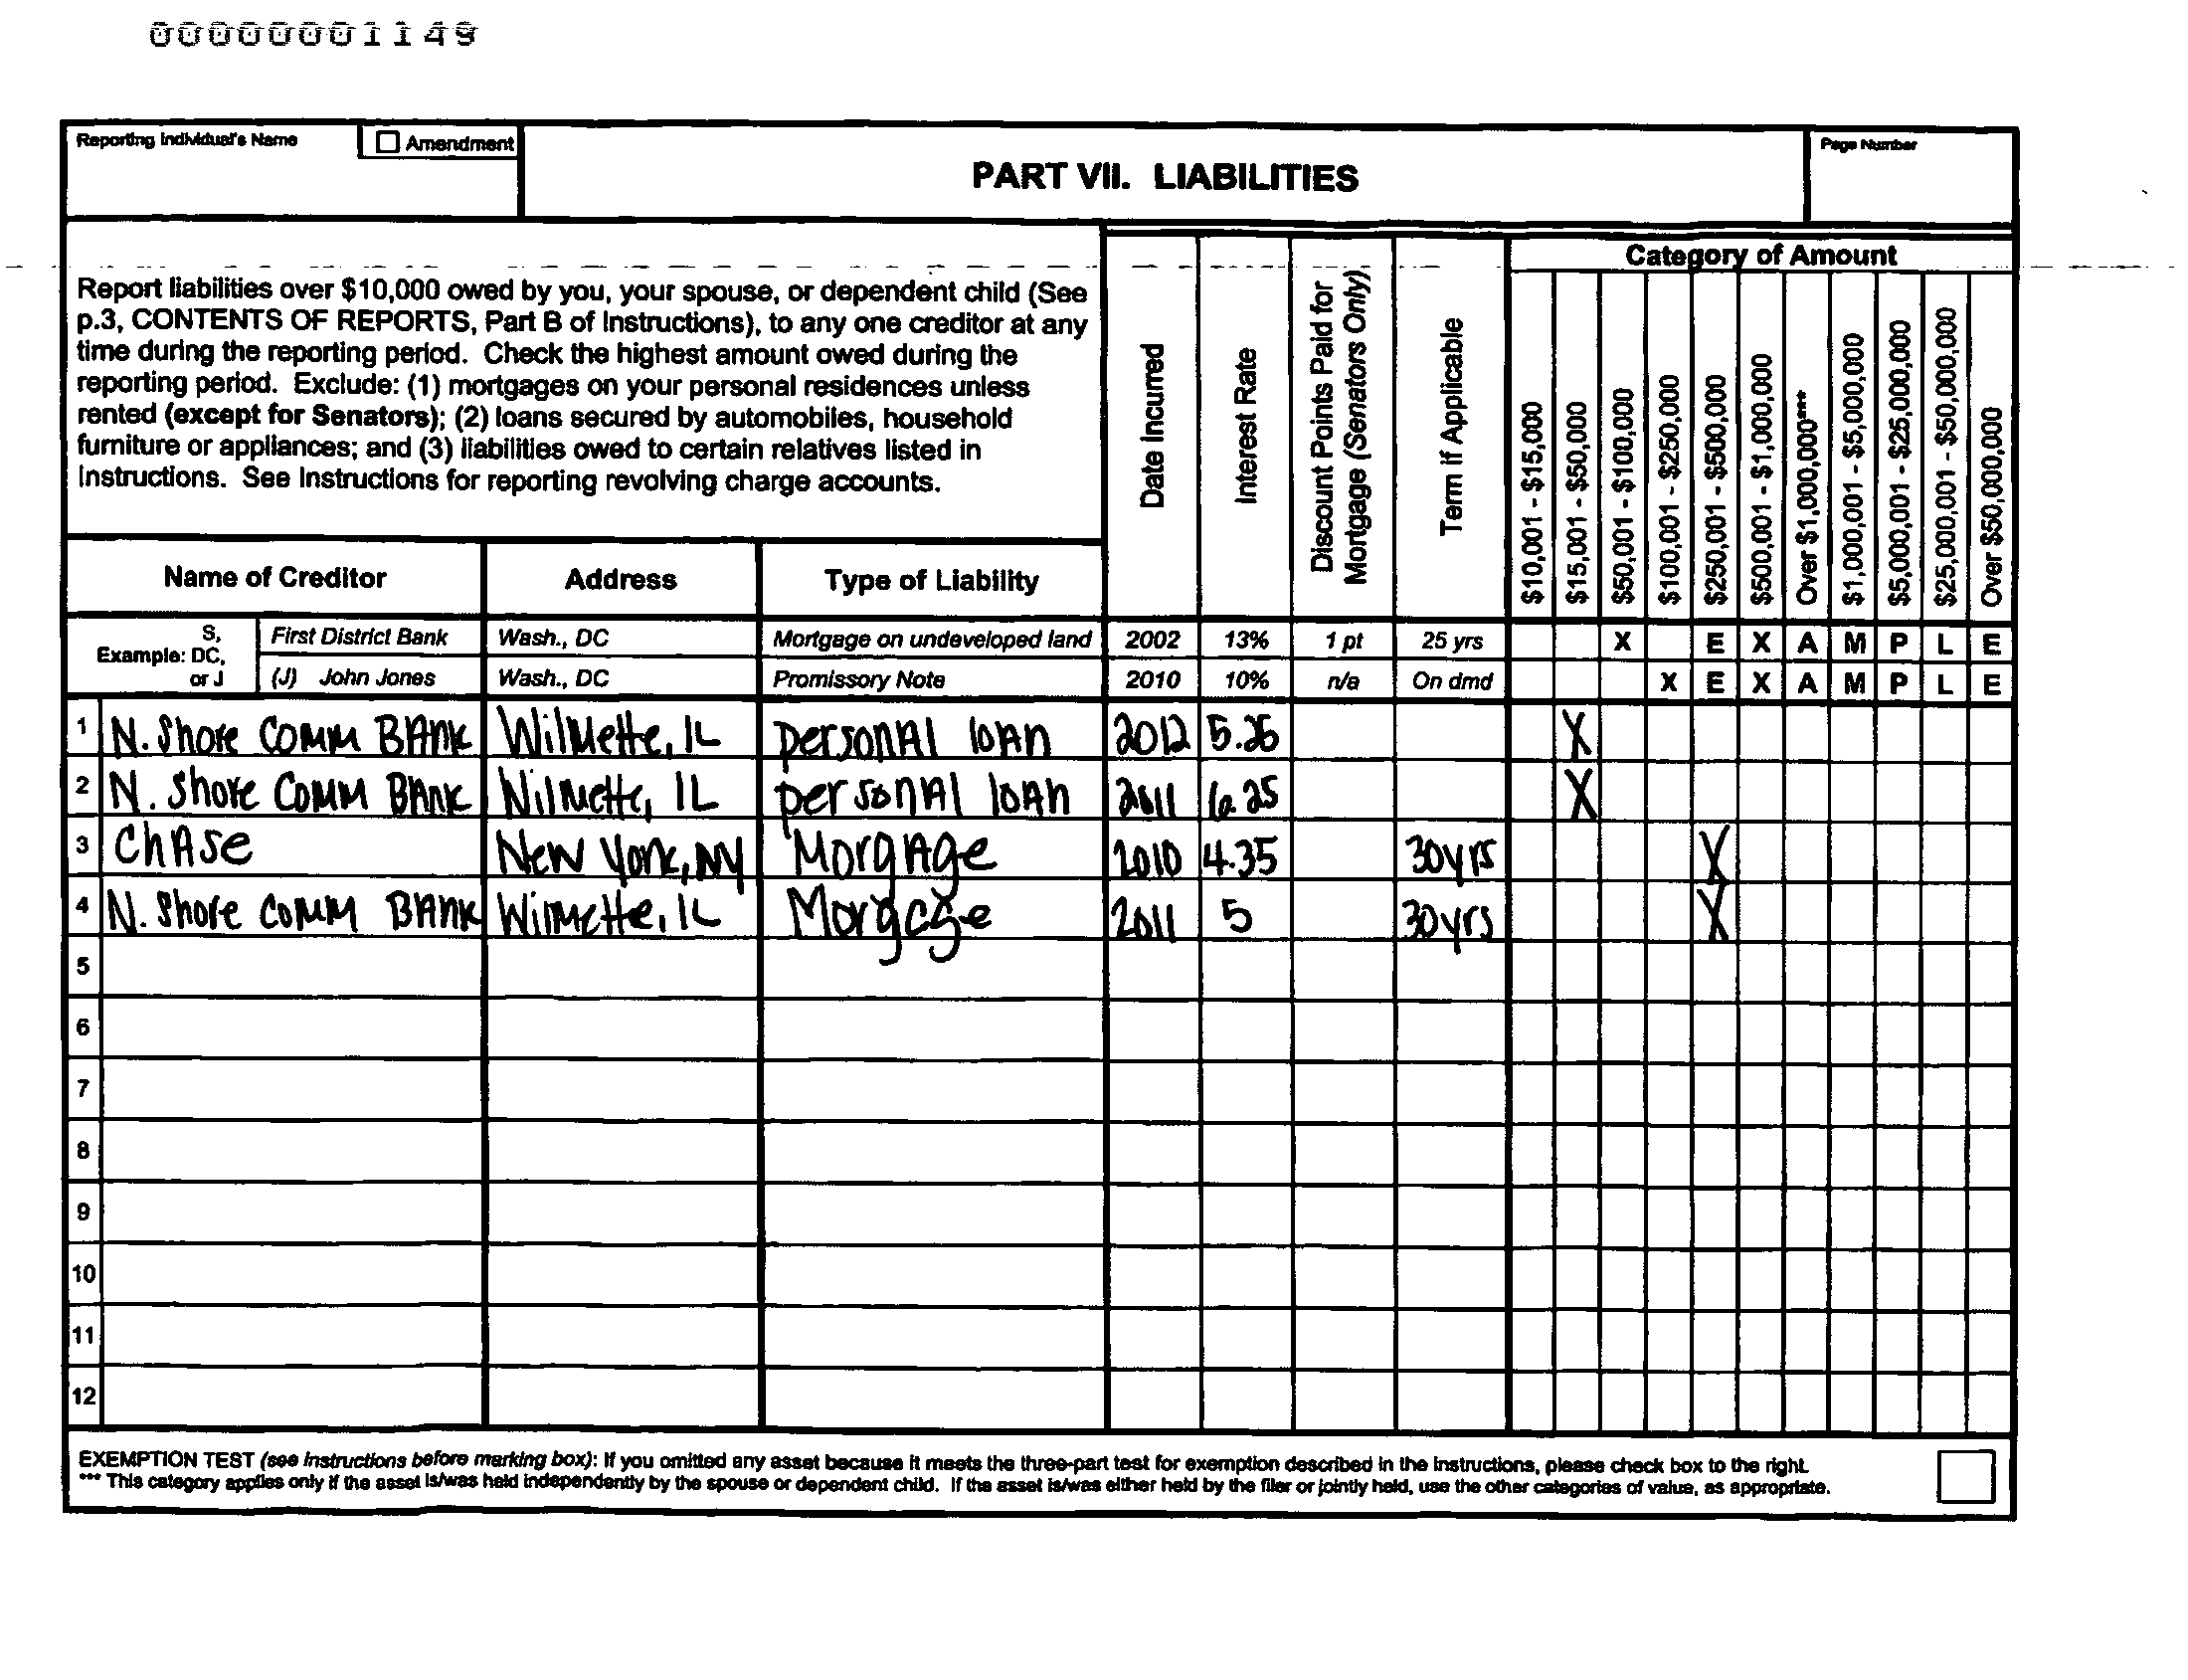 00000001149
Reporting Individual's Name
☐ Amendment
PART VII. LIABILITIES
Page Number
Report liabilities over $10,000 owed by you, your spouse, or dependent child (See
p.3, CONTENTS OF REPORTS, Part B of Instructions), to any one creditor at any
time during the reporting period. Check the highest amount owed during the
reporting period. Exclude: (1) mortgages on your personal residences unless
rented (except for Senators); (2) loans secured by automobiles, household
furniture or appliances; and (3) liabilities owed to certain relatives listed in
Instructions. See Instructions for reporting revolving charge accounts.
Date Incurred
Interest Rate
Discount Points Paid for
Mortgage (Senators Only)
Term if Applicable
Category of Amount
$10,001 - $15,000
$15,001 - $50,000
$50,001 - $100,000
$100,001 - $250,000
$250,001 - $500,000
$500,001 - $1,000,000
Over $1,000,000***
$1,000,001 - $5,000,000
$5,000,001 - $25,000,000
$25,000,001 - $50,000,000
Over $50,000,000
Name of Creditor Address Type of Liability
Example: S, DC, or J
First District Bank Wash., DC Mortgage on undeveloped land 2002 13% 1 pt 25 yrs X E X A M P L E
(J) John Jones Wash., DC Promissory Note 2010 10% n/a On dmd X E X A M P L E
1 N. Shore COMM BANK Wilmette, IL personAl loAn 2012 5.26 X
2 N. Shore COMM BANK Wilmette, IL personAl loAn 2011 6.25 X
3 ChAse New York, NY MorgAge 2010 4.35 30yrs X
4 N. Shore COMM BANK Wilmette, IL Morgage 2011 5 30yrs X
5
6
7
8
9
10
11
12
EXEMPTION TEST (see instructions before marking box): If you omitted any asset because it meets the three-part test for exemption described in the instructions, please check box to the right.
*** This category applies only if the asset is/was held independently by the spouse or dependent child. If the asset is/was either held by the filer or jointly held, use the other categories of value, as appropriate.